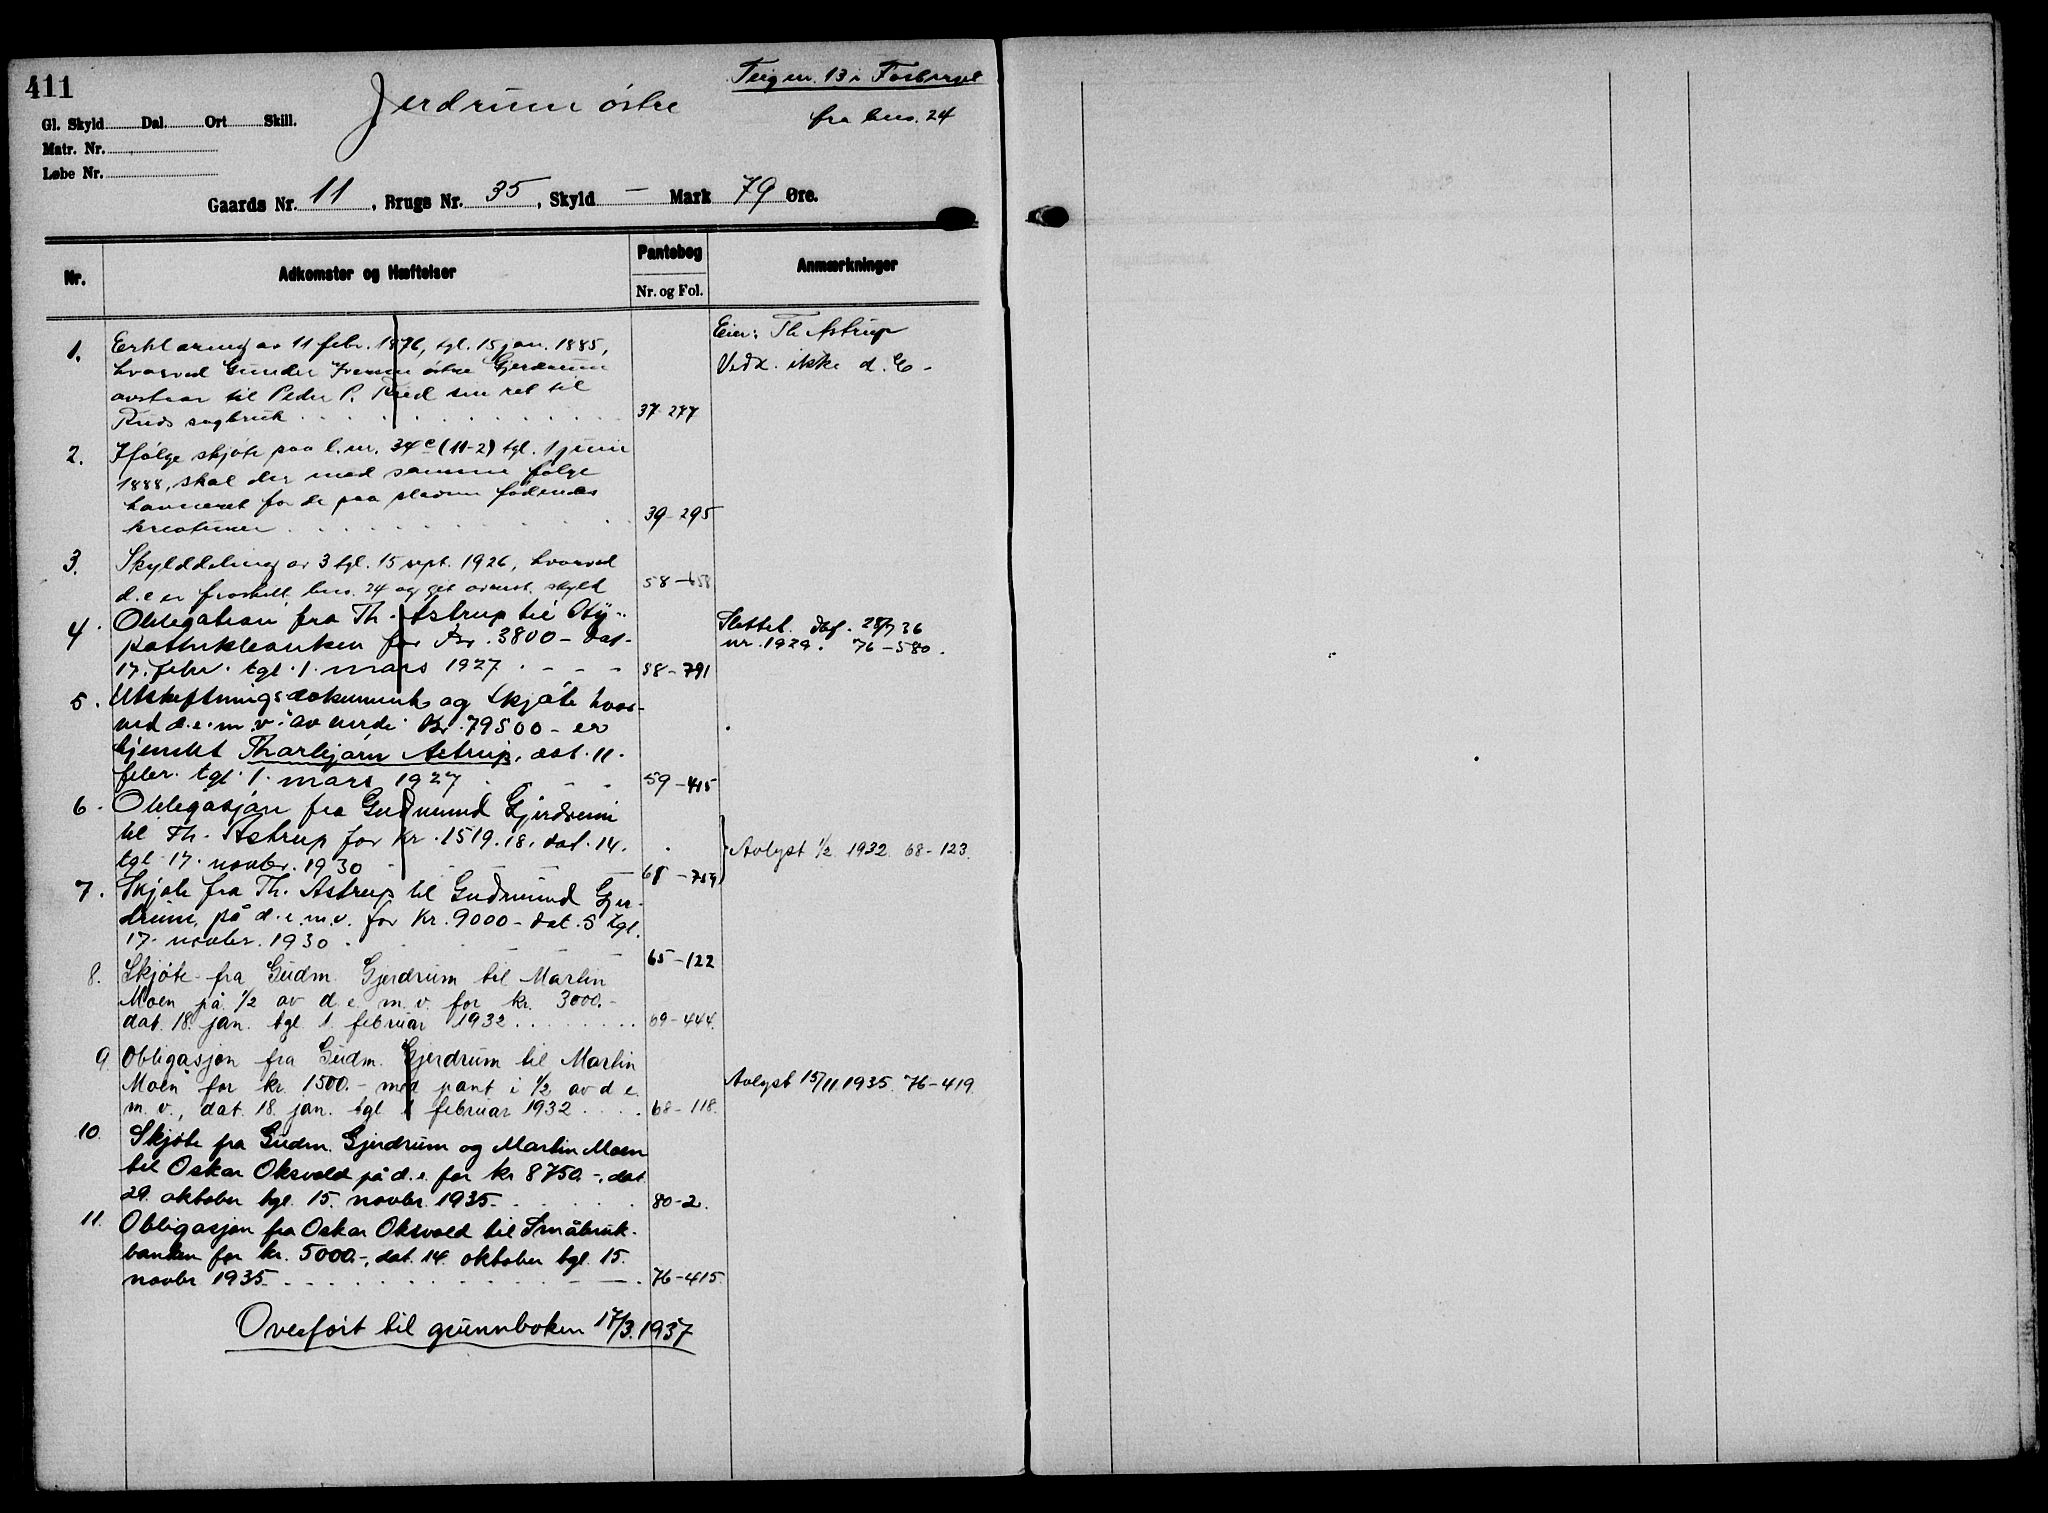 411
Jerdrum østre
Teig nr. 13 i
fra bno. 24
Gl. Skyld Dal. Ort Skill.
Matr. Nr.
Løbe Nr.
Gaards Nr. 11, Brugs Nr. 35, Skyld — Mark 79 Øre.
Nr.
Adkomster og Hæftelser
Pantebog
Nr. og Fol.
Anmærkninger
1. Erklæring av 11 febr. 1876, tgl. 15 jan. 1885,
hvorved Gunder Iversen østre Gjerdrum
avstaar til Peder P. Rud sin ret til
Ruds sagbruk 37-277
Eier: Th Astrup
Vedk. ikke d. E.
2. Ifølge skjøte paa l.nr. 34c (11-2) tgl. 1 juni
1888, skal der med samme følge
havneret for de paa pladsen fødendes
kreaturer 39-295
3. Skylddeling av 3 tgl. 15 sept. 1926, hvorved
d.e er fraskilt bno. 24 og git ovenst. skyld 58-658
4. Obligation fra Th. Astrup til Hy-
pothekbanken for Kr. 3800- dat.
17. febr. tgl. 1. mars 1927 58-791
Slettet. dbf. 28/7 36
nr. 1929. 76-580.
5. Utskiftningsdokument og skjøte hvor-
ved d.e.m.v. av verdi Kr. 79500- er
hjemlet Thorbjørn Astrup, dat. 11.
febr. tgl. 1. mars 1927 59-415
6. Obligasjon fra Gudmund Gjerdrum
til Th. Astrup for Kr. 1519.18, dat. 14.
tgl 17. novbr. 1930
Avlyst 1/2 1932 68-123.
7. Skjøte fra Th. Astrup til Gudmund Gjer-
drum, på d.e.m.v. for Kr. 9000- dat. 5 tgl.
17. novbr. 1930 65-122
8. Skjøte fra Gudm. Gjerdrum til Martin
Moen på 1/2 av d.e. m.v. for kr. 3000.-
dat. 18. jan. tgl 1. februar 1932 69-444.
9. Obligasjon fra Gudm. Gjerdrum til Martin
Moen for kr. 1500.- med pant i 1/2 av d e.
m.v., dat. 18. jan. tgl 1 februar 1932 68-118.
Avlyst 15/11.1935. 76-419.
10. Skjøte fra Gudm. Gjerdrum og Martin Moen
til Oskar Oksvold på d.e. for kr 8750.-, dat
29. oktober tgl. 15. novbr. 1935 80-2.
11. Obligasjon fra Oskar Oksvold til Småbruk-
banken for kr. 5000.-, dat. 14. oktober tgl. 15.
novbr 1935 76-415.
Overført til grunnboken 17/3.1937